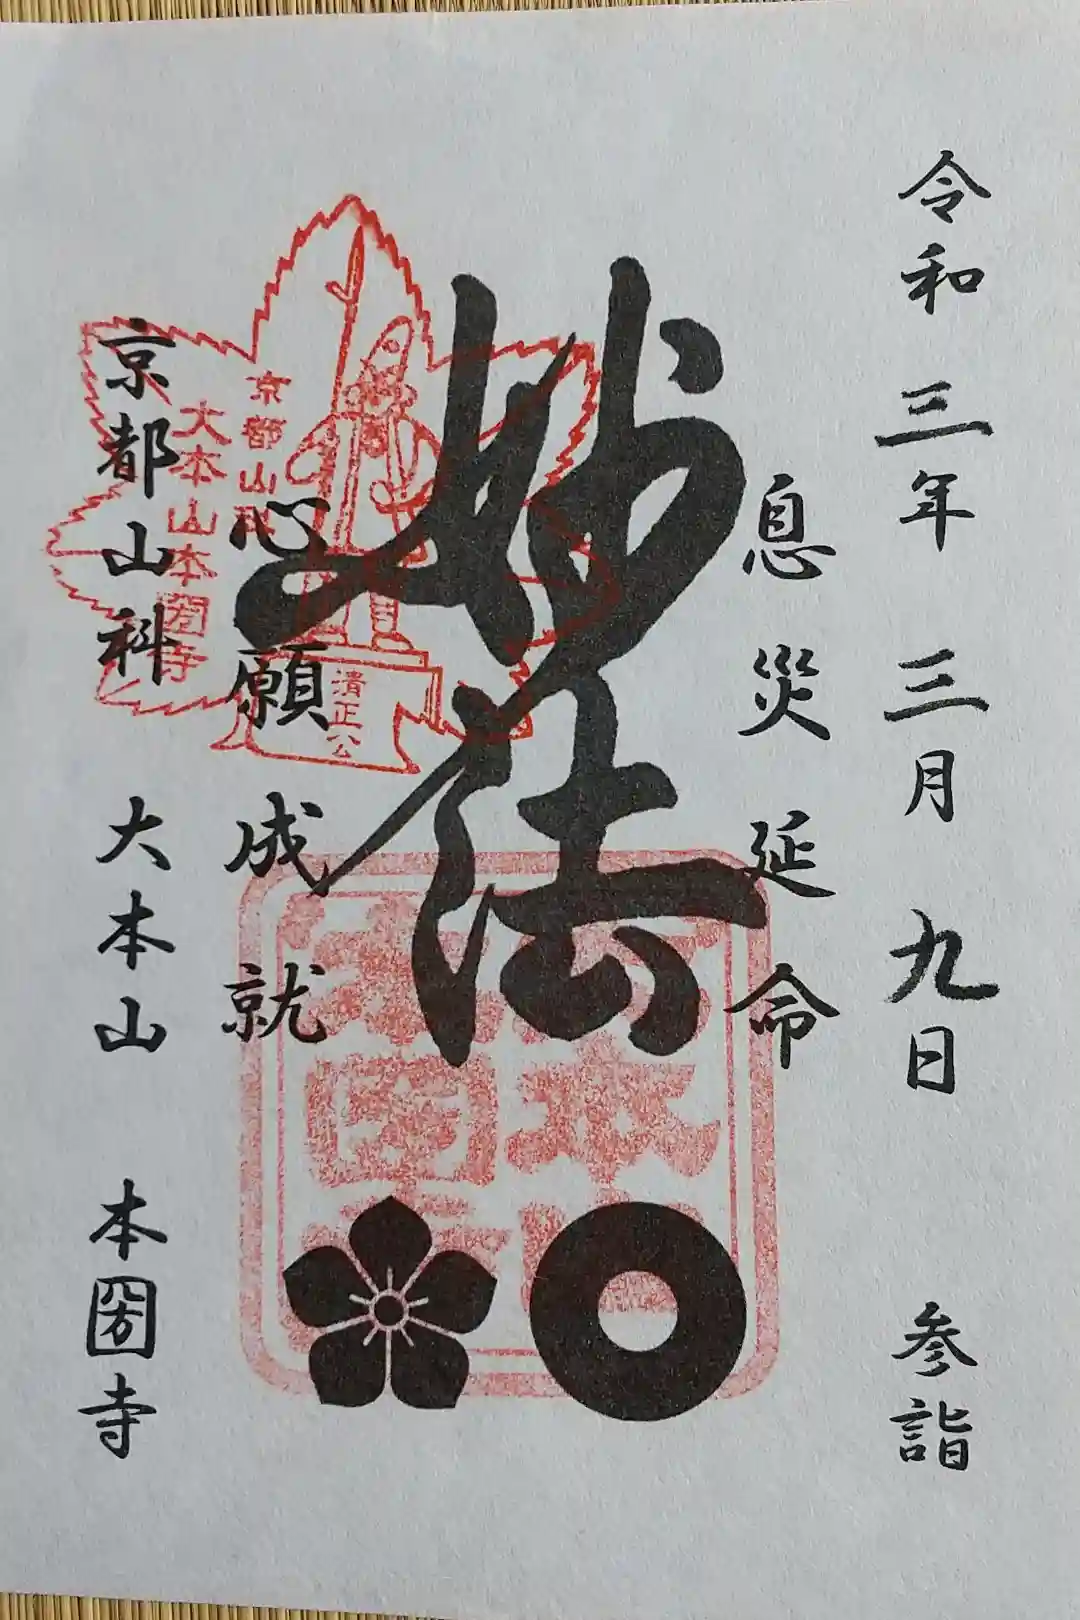 令和三年三月九日 参詣
息災延命
妙法
心願成就
京都山科 大本山 本圀寺
清正公
京都山科
大本山本圀寺